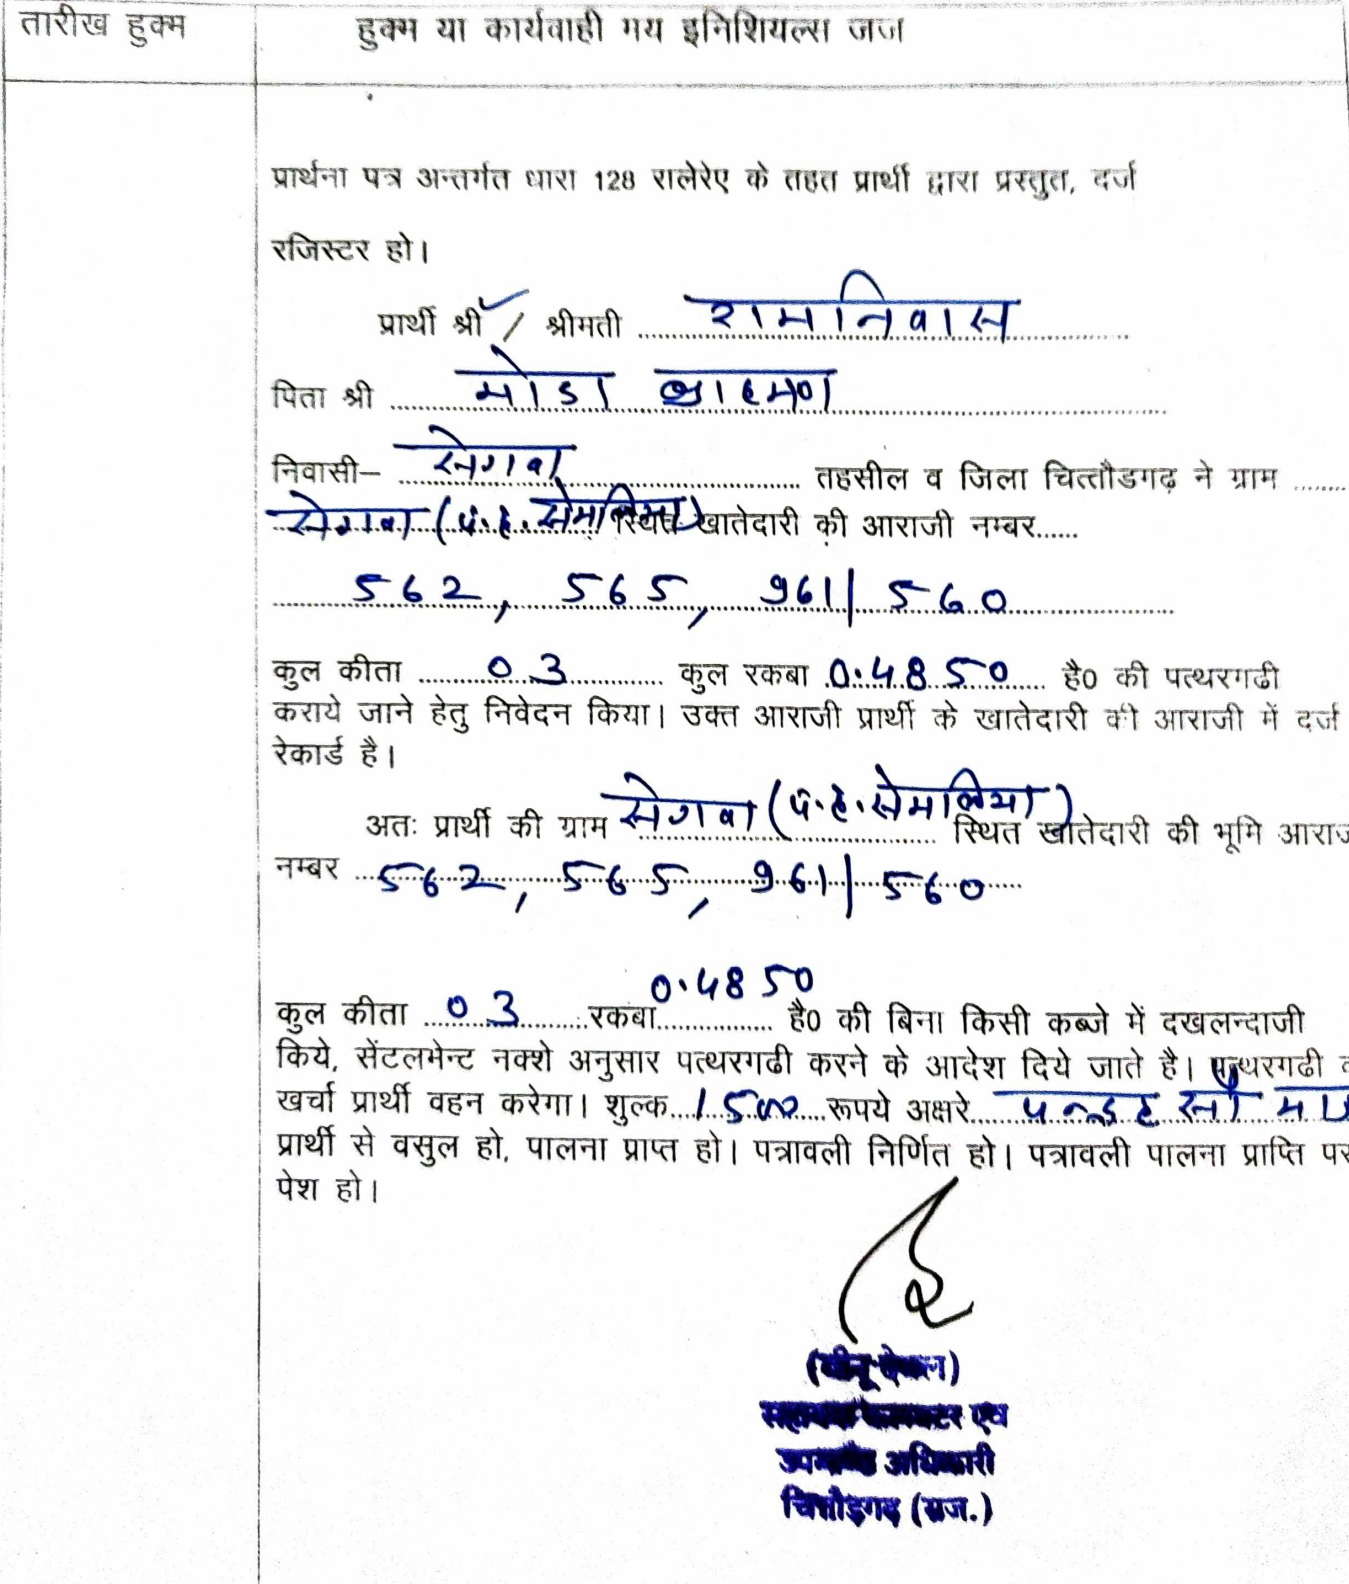 तारीख हुक्म
हुक्म या कार्यवाही मय इनिशियल्स जज
प्रार्थना पत्र अन्तर्गत धारा 128 रालेरेए के तहत प्रार्थी द्वारा प्रस्तुत, दर्ज
रजिस्टर हो।
प्रार्थी श्री / श्रीमती रामनिवास
पिता श्री मोडा ब्राहमण
निवासी– सेगवा तहसील व जिला चित्तौडगढ़ ने ग्राम
सेगवा (प.ह. सेमलिया) स्थित खातेदारी की आराजी नम्बर
562, 565, 961/560
कुल कीता 03 कुल रकबा 0.4850 है0 की पत्थरगढी
कराये जाने हेतु निवेदन किया। उक्त आराजी प्रार्थी के खातेदारी की आराजी में दर्ज
रेकार्ड है।
अतः प्रार्थी की ग्राम सेगवा (प.ह. सेमलिया) स्थित खातेदारी की भूमि
नम्बर 562, 565, 961/560
कुल कीता 03 रकबा 0.4850 है0 की बिना किसी कब्जे में दखलन्दाजी
किये, सेंटलमेन्ट नक्शे अनुसार पत्थरगढी करने के आदेश दिये जाते है। पत्थरगढी
खर्चा प्रार्थी वहन करेगा। शुल्क 1500 रूपये अक्षरे पन्द्रह सौ
प्रार्थी से वसुल हो, पालना प्राप्त हो। पत्रावली निर्णित हो। पत्रावली पालना प्राप्ति पर
पेश हो।
सहायक कलक्टर एवं
उपखण्ड अधिकारी
चित्तौड़गढ़ (राज.)